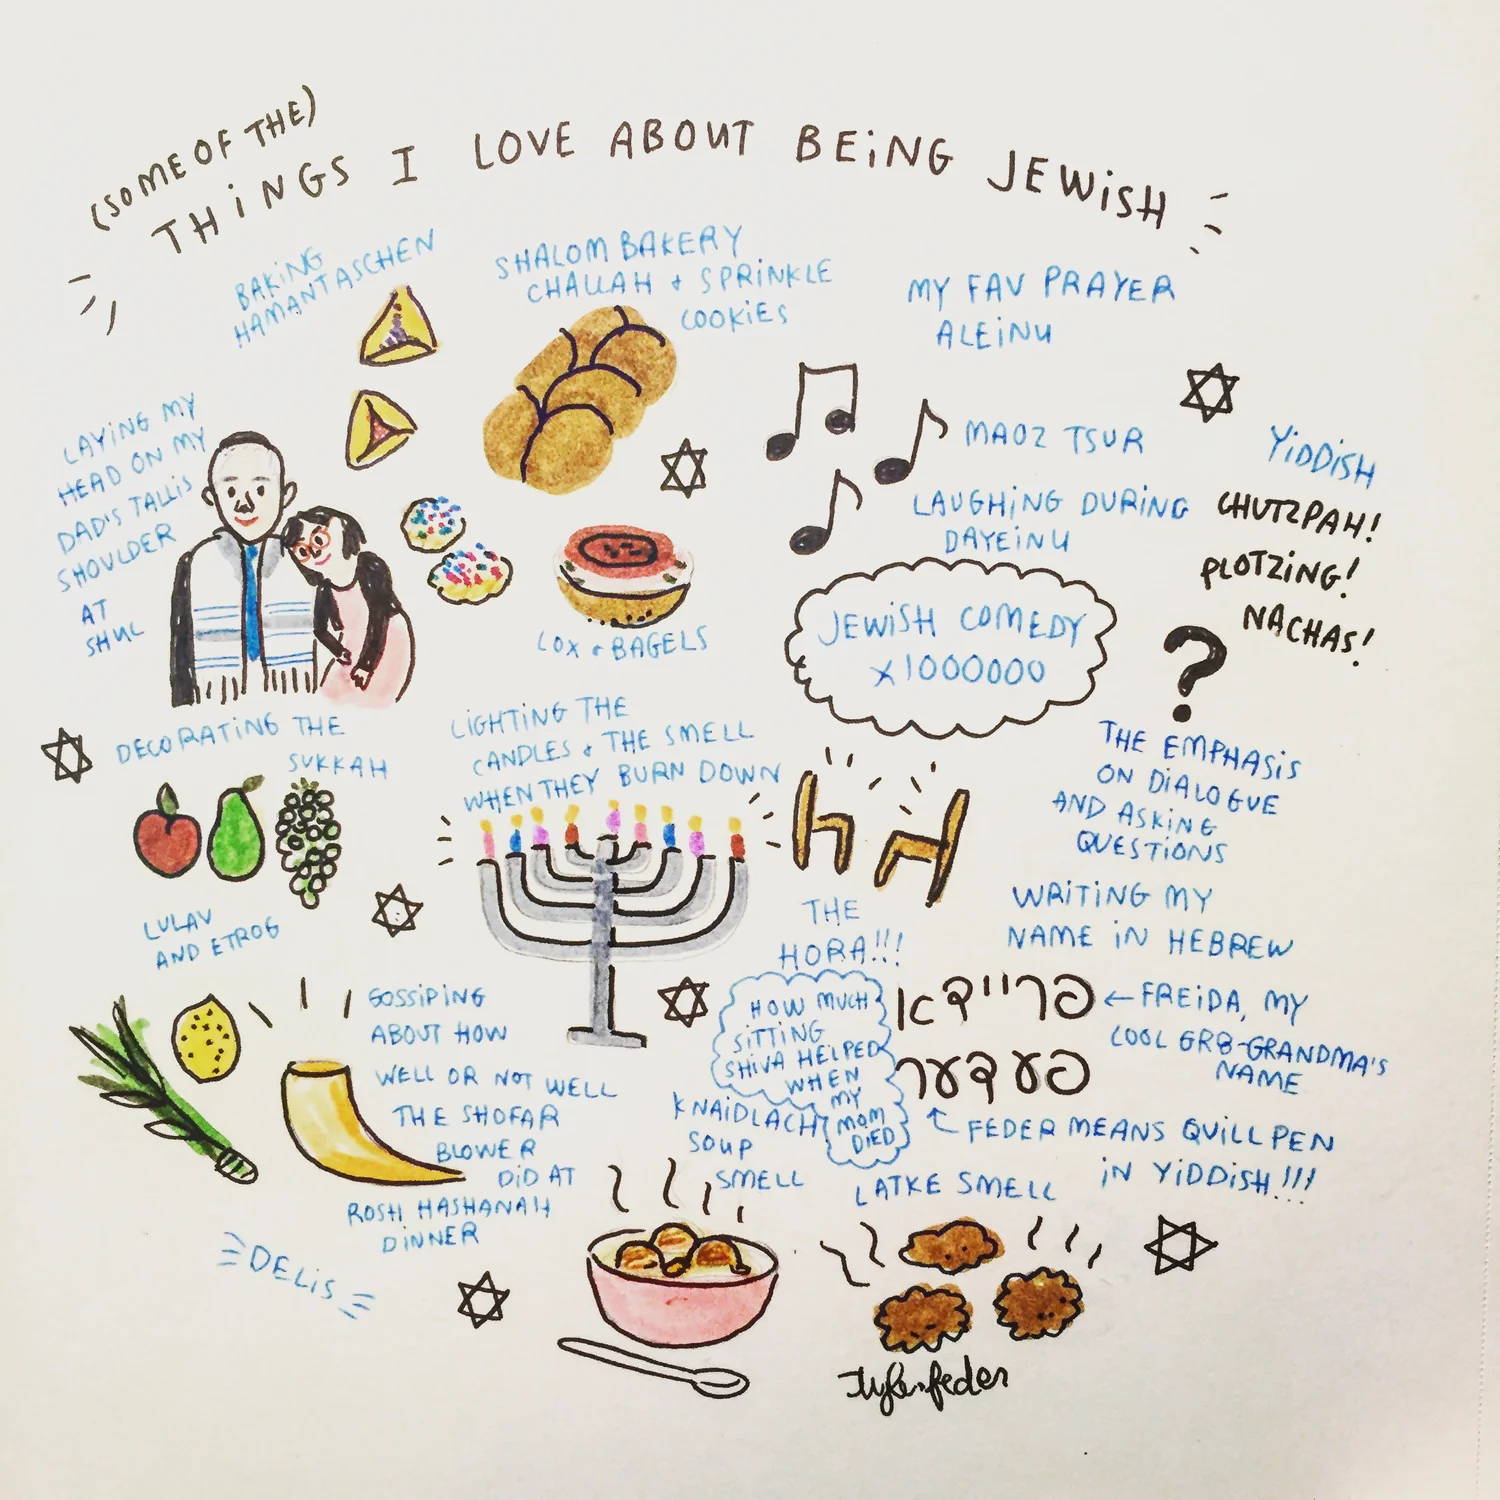 (SOME OF THE)
THINGS I LOVE ABOUT BEING JEWISH
BAKING
HAMANTASCHEN
SHALOM BAKERY
CHALLAH + SPRINKLE
COOKIES
MY FAV PRAYER
ALEINU
LAYING MY
HEAD ON MY
DAD'S TALLIS
SHOULDER
AT
SHUL
MAOZ TSUR
LAUGHING DURING
DAYEINU
YIDDISH
CHUTZPAH!
PLOTZING!
NACHAS!
LOX & BAGELS
JEWISH COMEDY
X1000000
DECORATING THE
SUKKAH
LIGHTING THE
CANDLES & THE SMELL
WHEN THEY BURN DOWN
?
THE EMPHASIS
ON DIALOGUE
AND ASKING
QUESTIONS
THE
HORA!!!
WRITING MY
NAME IN HEBREW
פריידא
← FREIDA, MY
COOL GR8-GRANDMA'S
NAME
פעדער
FEDER MEANS QUILL PEN
IN YIDDISH!!!
LULAV
AND ETROG
GOSSIPING
ABOUT HOW
WELL OR NOT WELL
THE SHOFAR
BLOWER
DID AT
ROSH HASHANAH
DINNER
HOW MUCH
SITTING
SHIVA HELPED
WHEN
MY
MOM
DIED
KNAIDLACH
SOUP
SMELL
LATKE SMELL
DELIS
Tyler feder